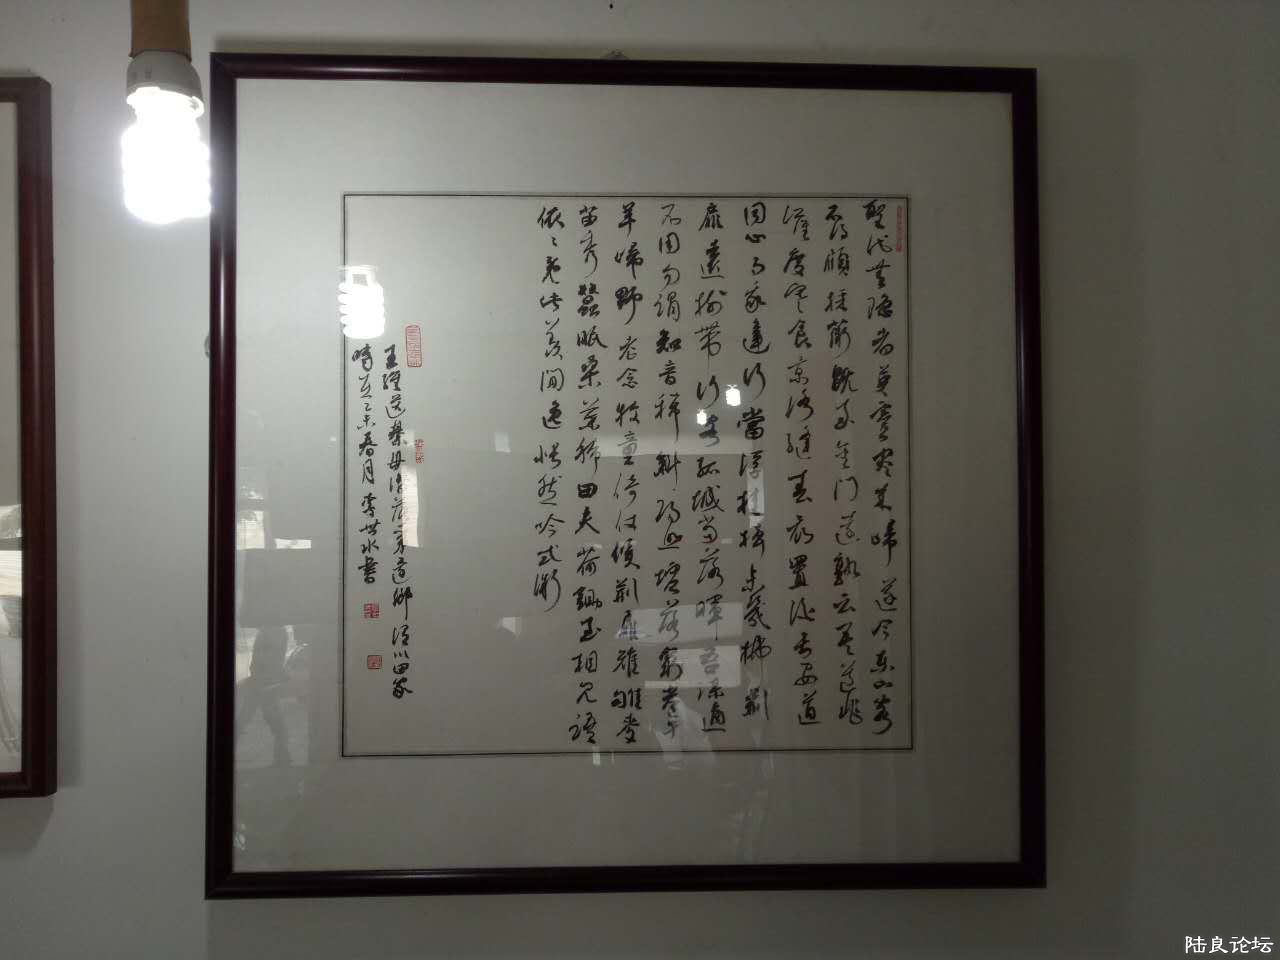 聖代無隱者英靈盡來歸遂令東山客
不得顧採薇既至金門遠孰云吾道非
淮度寒食京洛縫春衣置酒長安道
同心與我違行當浮桂棹未幾拂荊
扉遠樹帶行客孤城當落暉吾謀適
不用勿謂知音稀斜陽照墟落窮巷牛
羊歸野老念牧童倚仗候荊扉雉雊麥
苗秀蠶眠桑葉稀田夫荷鋤至相見語
依〻羨閒逸悵然吟式微
王維送綦毋潛落第還鄉渭川田家
時在乙未春月李世水書
陆良论坛